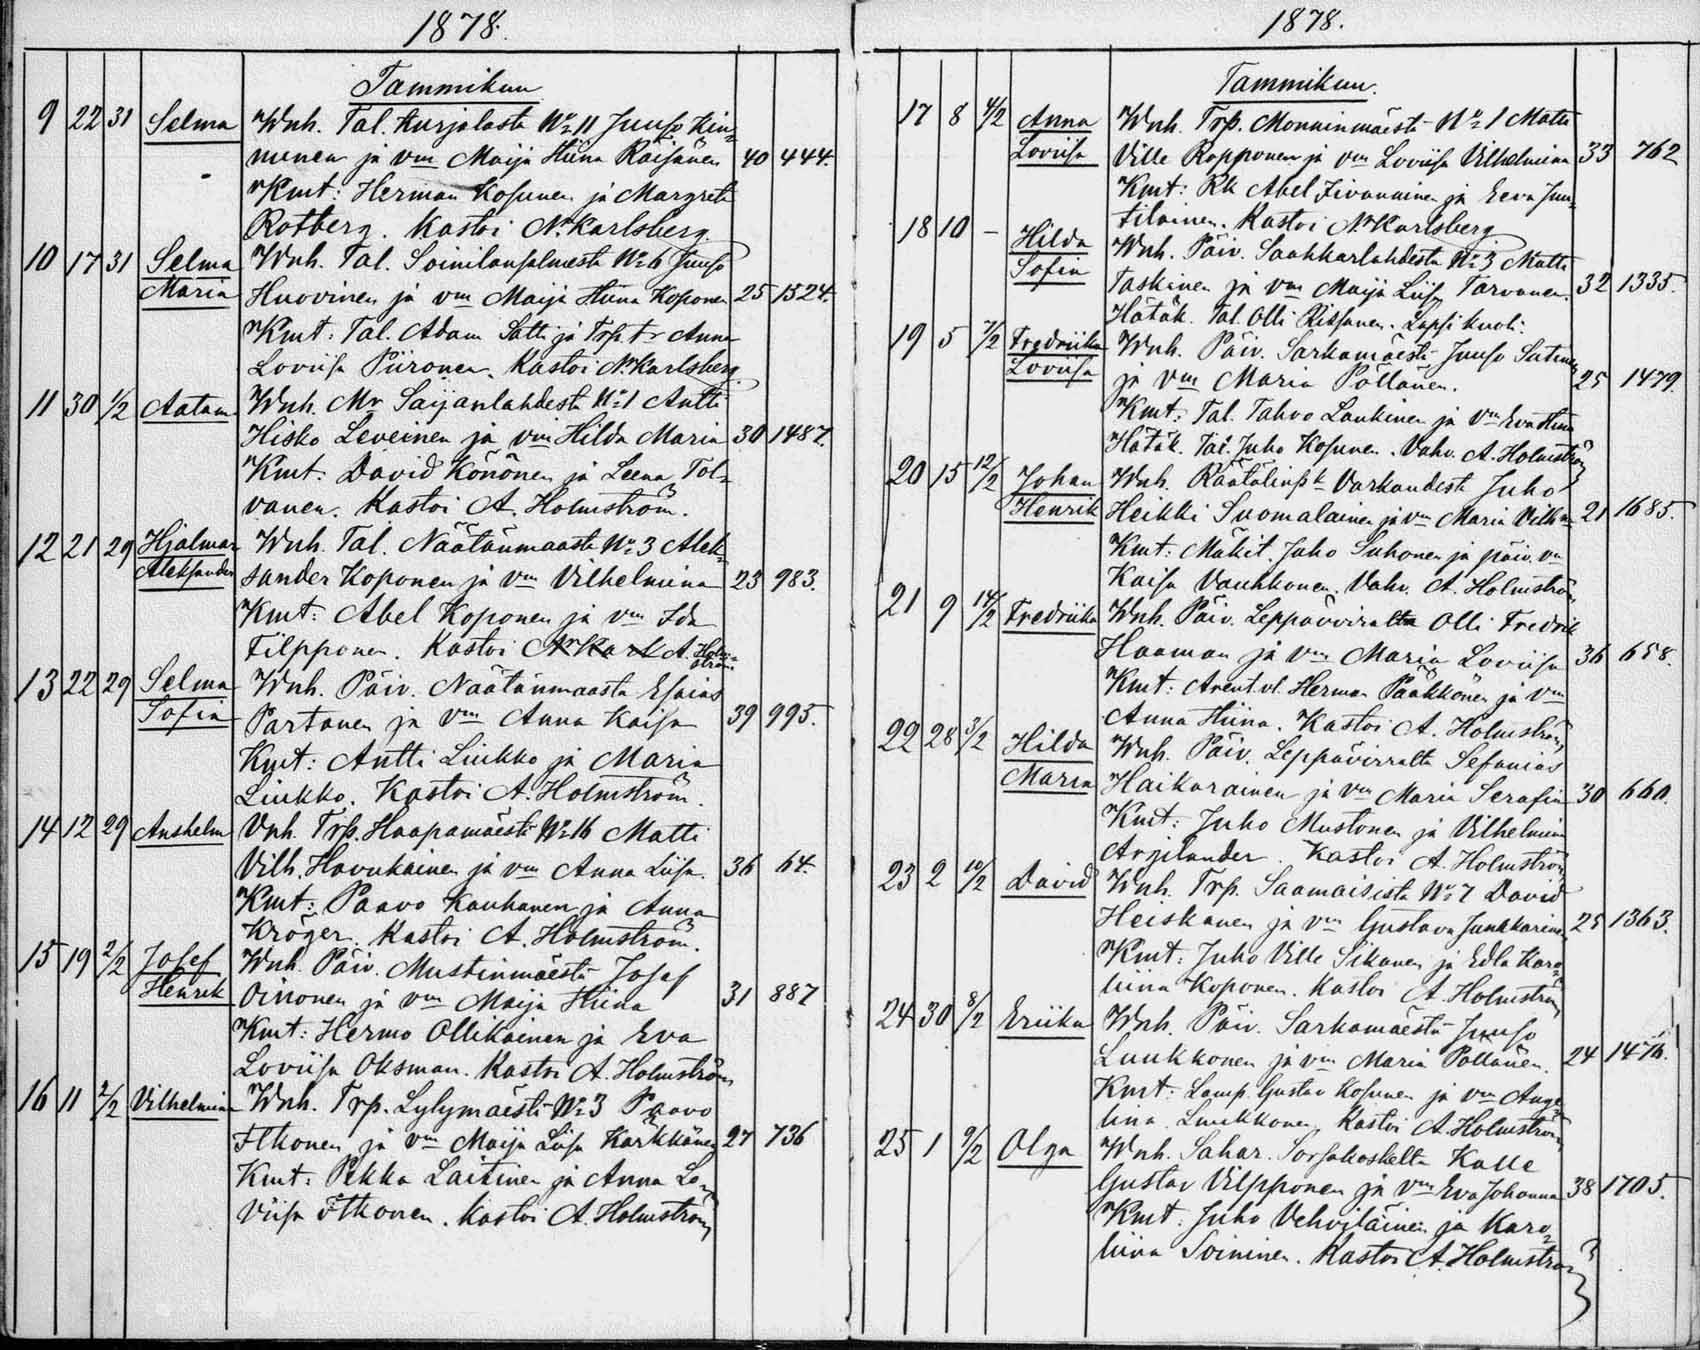 1878.
Tammikuu
9 22 31 Selma Wnh. Tal. Kurjalasta No 11 Juuso Kin-
nunen ja vm Maija Stiina Räisänen 40 444.
Kmt: Herman Kosunen ja Margreta
Rotberg. Kastoi N. Karlsberg.
10 17 31 Selma Wnh. Tal. Soinilansalmesta No 6 Juuso
Maria Huovinen ja vm Maija Stiina Koponen 25 1524.
Kmt: Tal. Adam Satti ja Trp. tr Anna
Loviisa Piironen. Kastoi N. Karlsberg.
11 30 1/2 Aatam Wnh. Mr Saijanlahdesta No 1 Antti
Hisko Leveinen ja vm Hilda Maria 30 1487.
Kmt: David Könönen ja Leena Tol-
vanen. Kastoi A. Holmström.
12 21 29 Hjalmar Wnh. Tal. Näätänmaasta No 3 Alek-
Aleksander sander Koponen ja vm Vilhelmiina 23 983.
Kmt: Abel Koponen ja vm Ida
Filpponen. Kastoi A. Holm-
ström
13 22 29 Selma Wnh. Päiv. Näätänmaasta Esaias
Sofia Partanen ja vm Anna Kaisa 39 995.
Kmt: Antti Liukko ja Maria
Liukko. Kastoi A. Holmström.
14 12 29 Anshelm Vnh. Trp. Haapamäestä No 16 Matti
Vilh. Havukainen ja vm Anna Liisa. 36 64.
Kmt: Paavo Kauhanen ja Anna
Kröger. Kastoi A. Holmström.
15 19 2/2 Josef Wnh. Päiv. Mustinmäestä Josef
Henrik Oinonen ja vm Maija Stiina 31 887
Kmt: Hermo Ollikainen ja Eva
Loviisa Oksman. Kastoi A. Holmström
16 11 2/2 Vilhelmina Wnh. Trp. Lylymäestä No 3 Paavo
Itkonen ja vm Maija Liisa Kärkkänen 27 736
Kmt: Pekka Laitinen ja Anna Lo-
viisa Itkonen. Kastoi A. Holmström
1878.
Tammikuu.
17 8 4/2 Anna Wnh. Trp. Monninmäestä No 1 Matti
Loviisa Ville Ropponen ja vm Loviisa Vilhelmina 33 762
Kmt: Rk Abel Iivannainen ja Eeva Juu-
tilainen. Kastoi N. Karlsberg
18 10 - Hilda Wnh. Päiv. Saahkarlahdesta No 3 Matti
Sofia Taskinen ja vm Maija Liisa Tarvanen. 32 1335.
Hätäk. Tal. Olli Ritsanen. Lapsi kuoli.
19 5 7/2 Fredriika Wnh. Päiv. Sarkamäestä Juuso Sutinen
Loviisa ja vm Maria Pöllänen. 25 1479.
Kmt. Tal. Tahvo Laukinen ja Vm Eva Stiina
Hätäk. Tal. Juho Kosunen. Vahv. A. Holmström
20 15 12/2 Johan Wnh. Räätälinsk Varkaudesta Juho
Henrik Heikki Suomalainen ja vm Maria Vilh. 21 1685.
Kmt: Mäkit. Juho Suhonen ja päiv. vm
Kaisa Vauhkonen. Vahv. A. Holmström
21 9 14/2 Fredriika Wnh. Päiv. Leppävirralta Olli Fredrik
Haaman ja vm Maria Loviisa 36 658.
Kmt: Arent.vl. Herman Pääkkönen ja vm
Anna Stiina. Kastoi A. Holmström
22 28 3/2 Hilda Wnh. Päiv. Leppävirralta Sefanias
Maria Haikarainen ja vm Maria Serafina 30 660.
Kmt: Juho Mustonen ja Vilhelmiina
Argilander. Kastoi A. Holmström
23 2 10/2 David Wnh. Trp. Saamaisista No 7 David
Heiskanen ja vm Gustava Junkkarinen 25 1363.
Kmt: Juho Ville Sikanen ja Edla Karo-
liina Koponen. Kastoi A. Holmström
24 30 8/2 Eriika Wnh. Päiv. Sarkamäestä Juuso
Luukkonen ja vm Maria Pöllänen. 24 1476.
Kmt: Lamp. Gustav Kosunen ja vm Ange-
lina Luukkonen. Kastoi A. Holmström
25 1 9/2 Olga Wnh. Sahar. Sorsakoskelta Kalle
Gustav Vilpponen ja vm Eva Johanna 38 1705.
Kmt: Juho Vehviläinen ja Karo-
liina Soininen. Kastoi A. Holmström